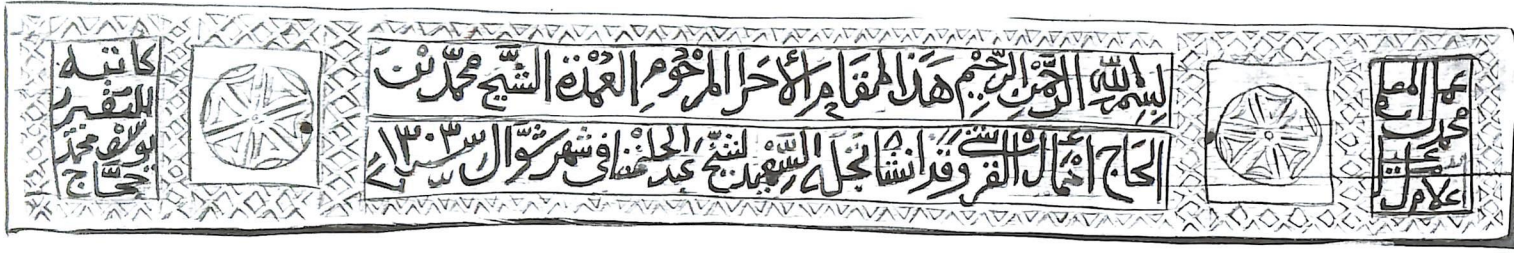 عمل المعلم
محمد
علام
بسم الله الرحمن الرحيم هذا المقام الأحر المرحوم العمدة الشيخ محمد بن
الحاج وقد انشا نجله الشهيد لشيخ عبد الحليم في شهر شوال سنة ١٣٠٣
كاتبه
الفقير
يوسف محمد
حجاج